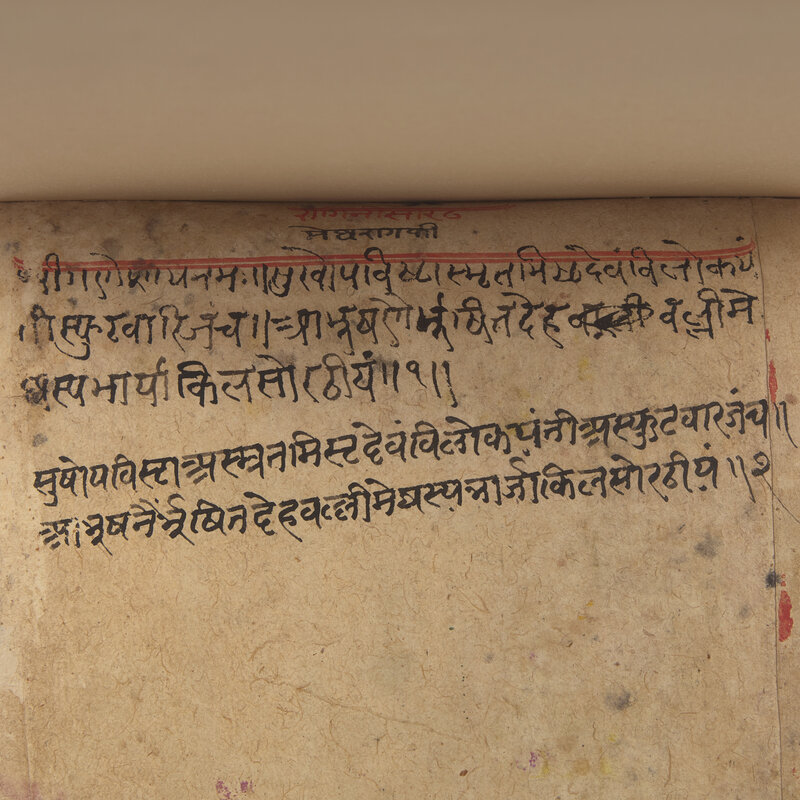 रागनीसोरठ
मेघरागकी
श्रीगणेशायनमः॥सुखोपविष्टास्मृतमिष्टदेवंविलोकयं
तीस्फुटवारिजंच॥आभूषणैर्भूषितदेहवल्लीमे
घस्यभार्याकिलसोरठीयं॥१॥
सुषोपविस्टाअस्म्रतमिस्टदेवंविलोकयंनीअस्फुटवारजंच॥
आभूषनैर्भूषितदेहवल्लीमेघस्यभार्जाकिलसोरठीयं॥२